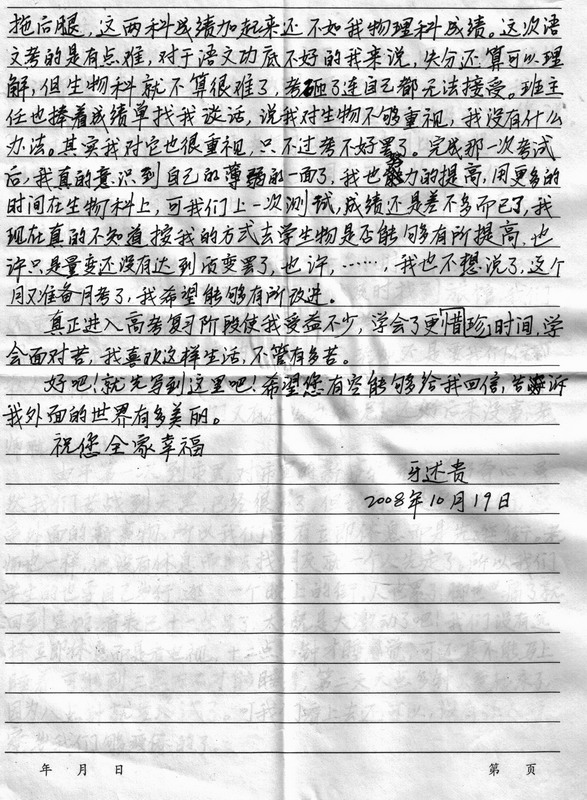 拖后腿，这两科成绩加起来还不如我物理科成绩。这次语
文考的是有点难，对于语文功底不好的我来说，失分还算可以理
解，但生物科就不算很难了，考砸了连自己都无法接受。班主
任也捧着成绩单找我谈话，说我对生物不够重视，我没有什么
办法。其实我对它也很重视，只不过考不好罢了。完成那一次考试
后，我真的意识到自己的薄弱的一面了，我也努力的提高，用更多的
时间在生物科上，可我们上一次测试，成绩还是差不多而已了，我
现在真的不知道按我的方式去学生物是否能够有所提高，也
许只是量变还没有达到质变罢了，也许，……，我也不想说了，这个
月又准备月考了，我希望能够有所改进。
真正进入高考复习阶段使我受益不少，学会了更惜珍时间，学
会面对苦，我喜欢这样生活，不管有多苦。
好吧！就先写到这里吧！希望您有空能够给我回信，告诉
我外面的世界有多美丽。
祝您全家幸福
牙述贵
2008年10月19日
年 月 日 第 页